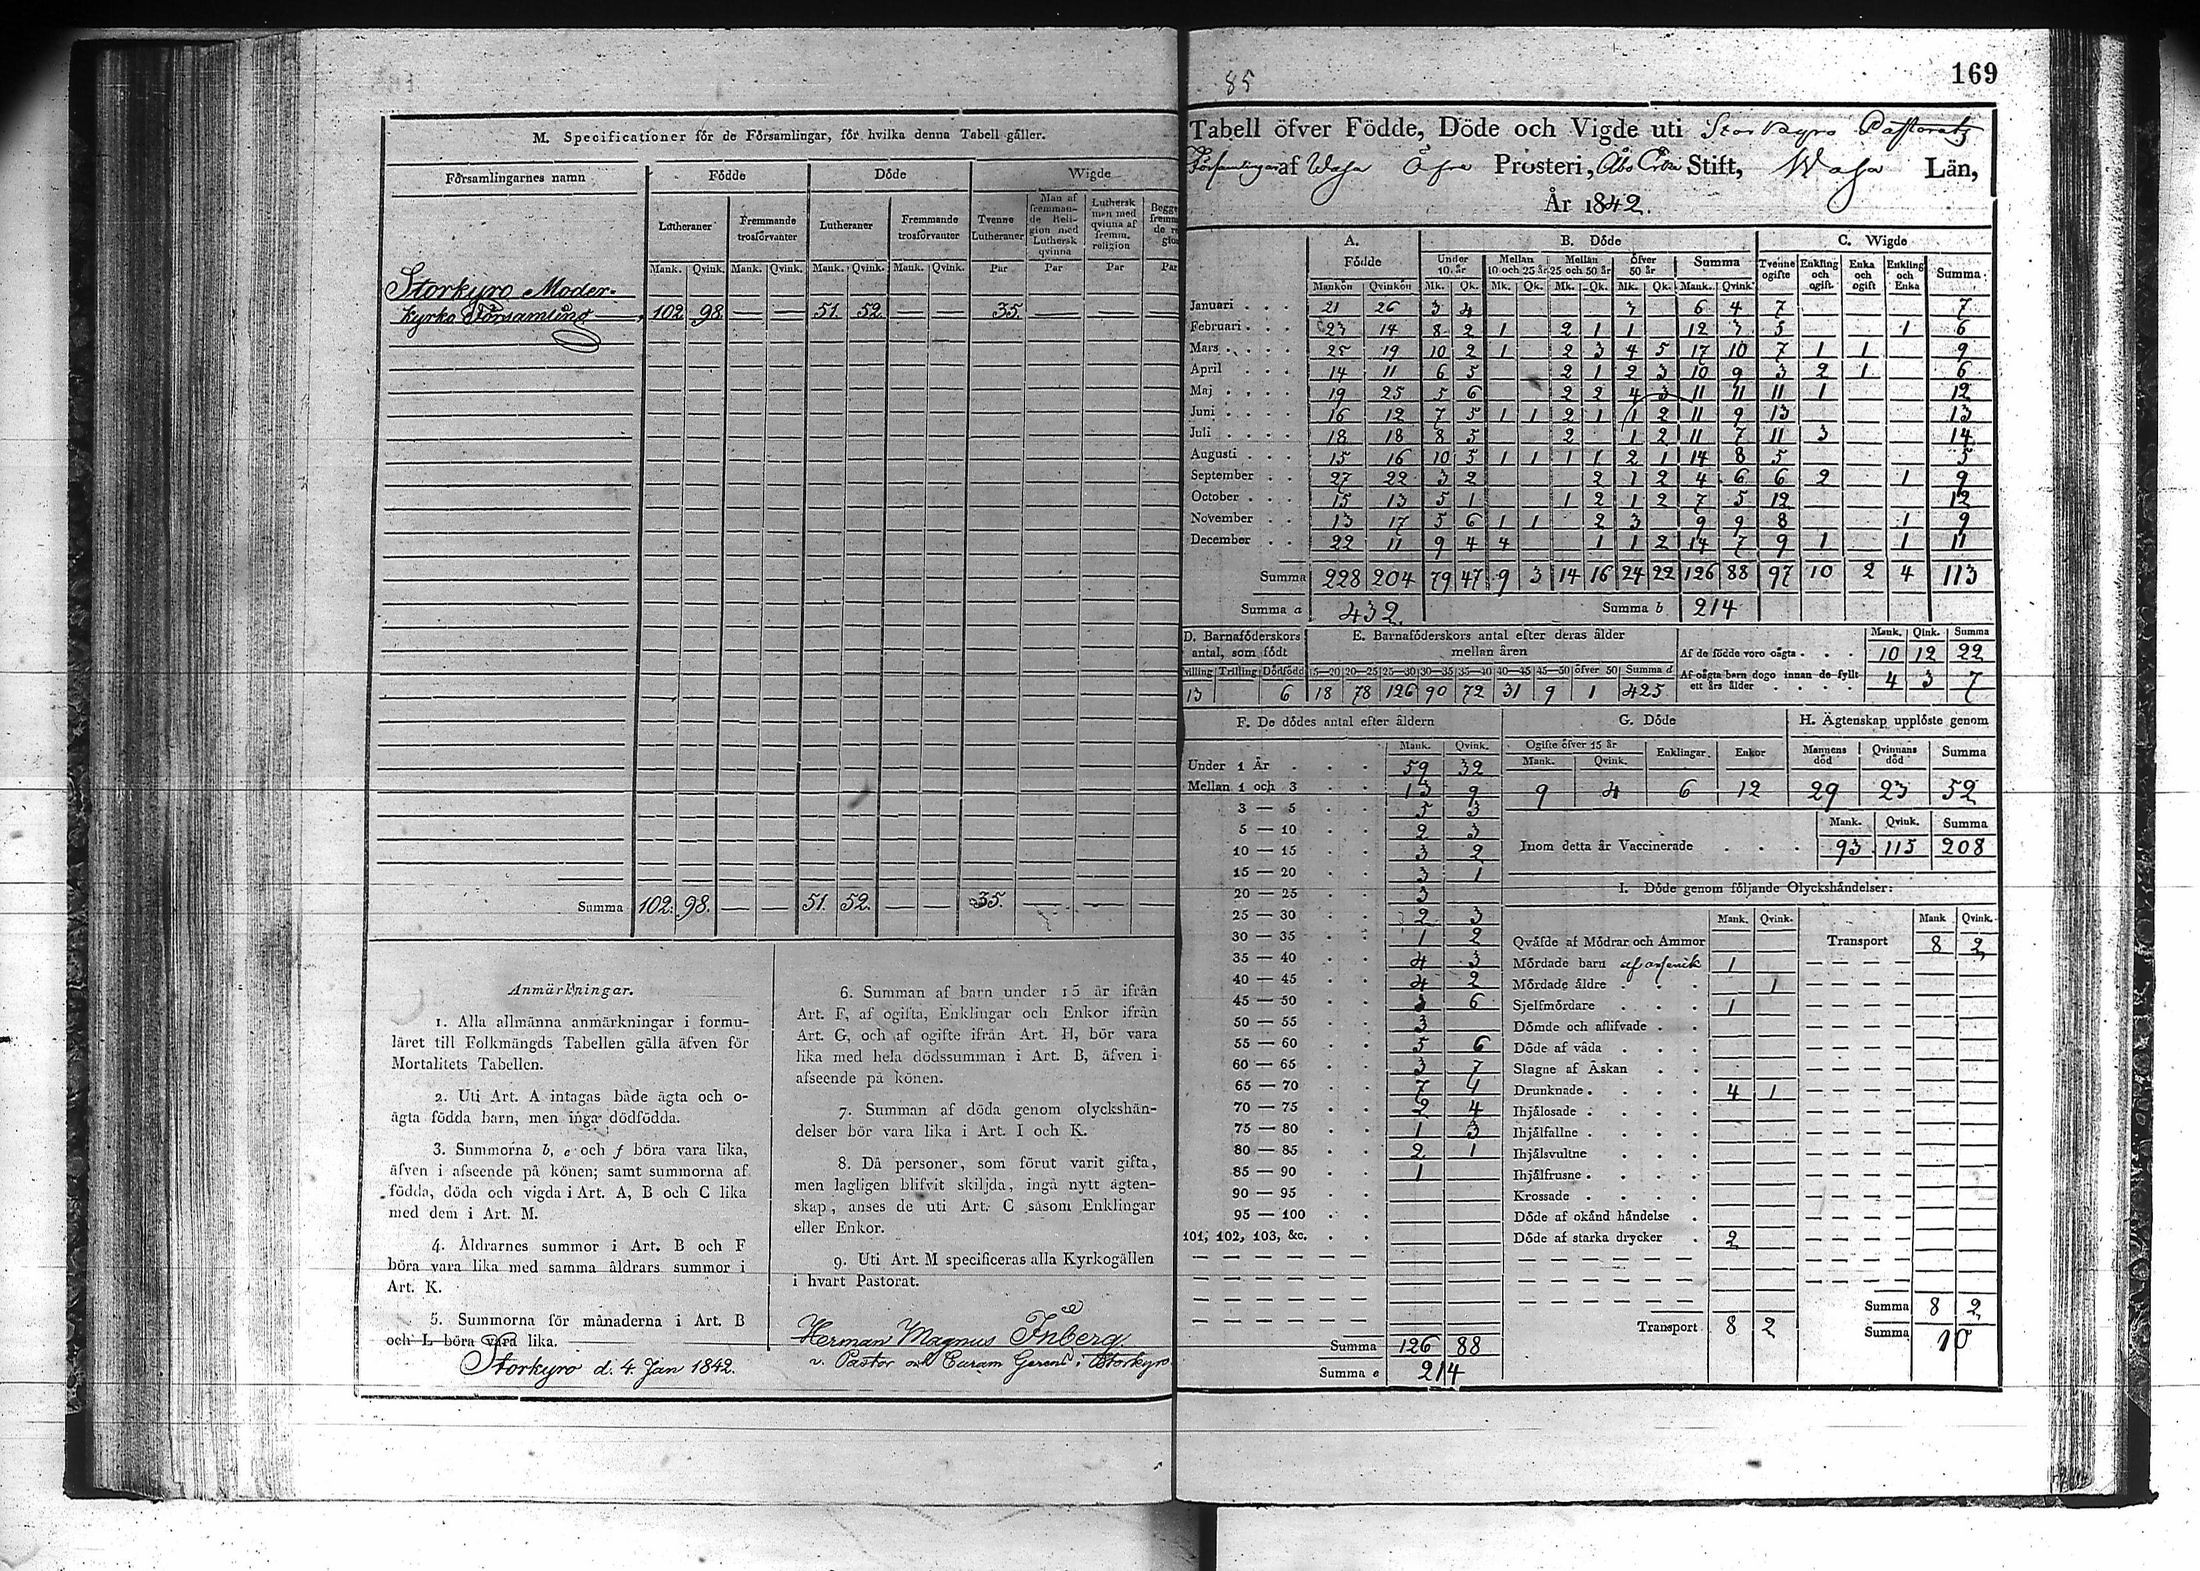 M. Specificationer för de Församlingar, för hvilka denna Tabell gäller.
Församlingarnes namn Födde Döde Wigde
Lutheraner Fremmande trosförvanter Lutheraner Fremmande trosförvanter Tvenne Lutheraner Man af fremmande Religion med Luthersk qvinna Luthersk man med qvinna af fremm. religion
Mank. Qvink. Mank. Qvink. Mank. Qvink. Mank. Qvink. Par Par Par
Storkyro Moder-
kyrko Församling 102 98 — — 51. 52. — — 35. — —
Summa 102. 98. — — 51. 52. — — 35. — —
Anmärkningar.
1. Alla allmänna anmärkningar i formu-
läret till Folkmängds Tabellen gälla äfven för
Mortalitets Tabellen.
2. Uti Art. A intagas både ägta och o-
ägta födda barn, men inga dödfödda.
3. Summorna b, e och f böra vara lika,
äfven i afseende på könen; samt summorna af
födda, döda och vigda i Art. A, B och C lika
med dem i Art. M.
4. Åldrarnes summor i Art. B och F
böra vara lika med samma åldrars summor i
Art. K.
5. Summorna för månaderna i Art. B
och L böra vara lika.
Storkyro d. 4. Jan 1842.
6. Summan af barn under 15 år ifrån
Art. F, af ogifta, Enklingar och Enkor ifrån
Art. G, och af ogifte ifrån Art. H, bör vara
lika med hela dödssumman i Art. B, äfven i
afseende på könen.
7. Summan af döda genom olyckshän-
delser bör vara lika i Art. I och K.
8. Då personer, som förut varit gifta,
men lagligen blifvit skiljda, ingå nytt ägten-
skap, anses de uti Art. C såsom Enklingar
eller Enkor.
9. Uti Art. M specificeras alla Kyrkogällen
i hvart Pastorat.
Herman Magnus Inberg
v. Pastor och Curam Gerens i Storkyro
85
169
Tabell öfver Födde, Döde och Vigde uti Storkyro Pastorats
Församlingar af Wasa Öfre Prosteri, Åbo Stift, Wasa Län,
År 1842.
A. Födde B. Döde C. Wigde
Under 10 år Mellan 10 och 25 år Mellan 25 och 50 år Öfver 50 år Summa Tvenne ogifte Enkling och ogift Enka och ogift Enkling och Enka Summa
Mankön Qvinkön Mk. Qk. Mk. Qk. Mk. Qk. Mk. Qk. Mank. Qvink.
Januari 21 26 3 4 3 6 4 7 7
Februari 23 14 8 2 1 2 1 1 12 3 5 1 6
Mars 25 19 10 2 1 2 3 4 5 17 10 7 1 1 9
April 14 11 6 5 2 1 2 3 10 9 3 2 1 6
Maj 19 25 5 6 2 2 4 3 11 11 11 1 12
Juni 16 12 7 5 1 1 2 1 1 2 11 9 13 13
Juli 18 18 8 5 2 1 2 11 7 11 3 14
Augusti 15 16 10 5 1 1 1 1 2 1 14 8 5 5
September 27 22 3 2 2 1 2 4 6 6 2 1 9
October 15 13 5 1 1 2 1 2 7 5 12 12
November 13 17 5 6 1 1 2 3 9 9 8 1 9
December 22 11 9 4 4 1 1 2 14 7 9 1 1 11
Summa 228 204 79 47 9 3 14 16 24 22 126 88 97 10 2 4 113
Summa a 432. Summa b 214
D. Barnaföderskors antal, som födt E. Barnaföderskors antal efter deras ålder mellan åren Mank. Qink. Summa
Af de födde voro oägta 10 12 22
villing Trilling Dödfödd 15—20 20—25 25—30 30—35 35—40 40—45 45—50 öfver 50 Summa d
Af oägta barn dogo innan de fyllt ett års ålder 4 3 7
13 6 18 78 126 90 72 31 9 1 425
F. De dödes antal efter åldern
Mank. Qvink.
Under 1 År 59 32
Mellan 1 och 3 13 9
3 — 5 5 3
5 — 10 2 3
10 — 15 3 2
15 — 20 3 1
20 — 25 3
25 — 30 2 3
30 — 35 1 2
35 — 40 4 3
40 — 45 4 2
45 — 50 3 6
50 — 55 3
55 — 60 5 6
60 — 65 3 7
65 — 70 7 1
70 — 75 2 4
75 — 80 1 3
80 — 85 2 1
85 — 90 1
90 — 95
95 — 100
101, 102, 103, &c.
Summa 126 88
Summa e 214
G. Döde H. Ägtenskap upplöste genom
Ogifte öfver 15 år Enklingar Enkor Mannens död Qvinnans död Summa
Mank. Qvink.
9 4 6 12 29 23 52
Mank. Qvink. Summa
Inom detta år Vaccinerade 93 115 208
I. Döde genom följande Olyckshändelser:
Mank. Qvink. Mank Qvink.
Qväfde af Mödrar och Ammor Transport 8 2
Mördade barn af arsenik 1
Mördade äldre 1
Sjelfmördare 1
Dömde och aflifvade
Döde af våda
Slagne af Åskan
Drunknade 4 1
Ihjälosade
Ihjälfallne
Ihjälsvultne
Ihjälfrusne
Krossade
Döde af okänd händelse
Döde af starka drycker 2
Summa 8 2
Transport 8 2 Summa 10